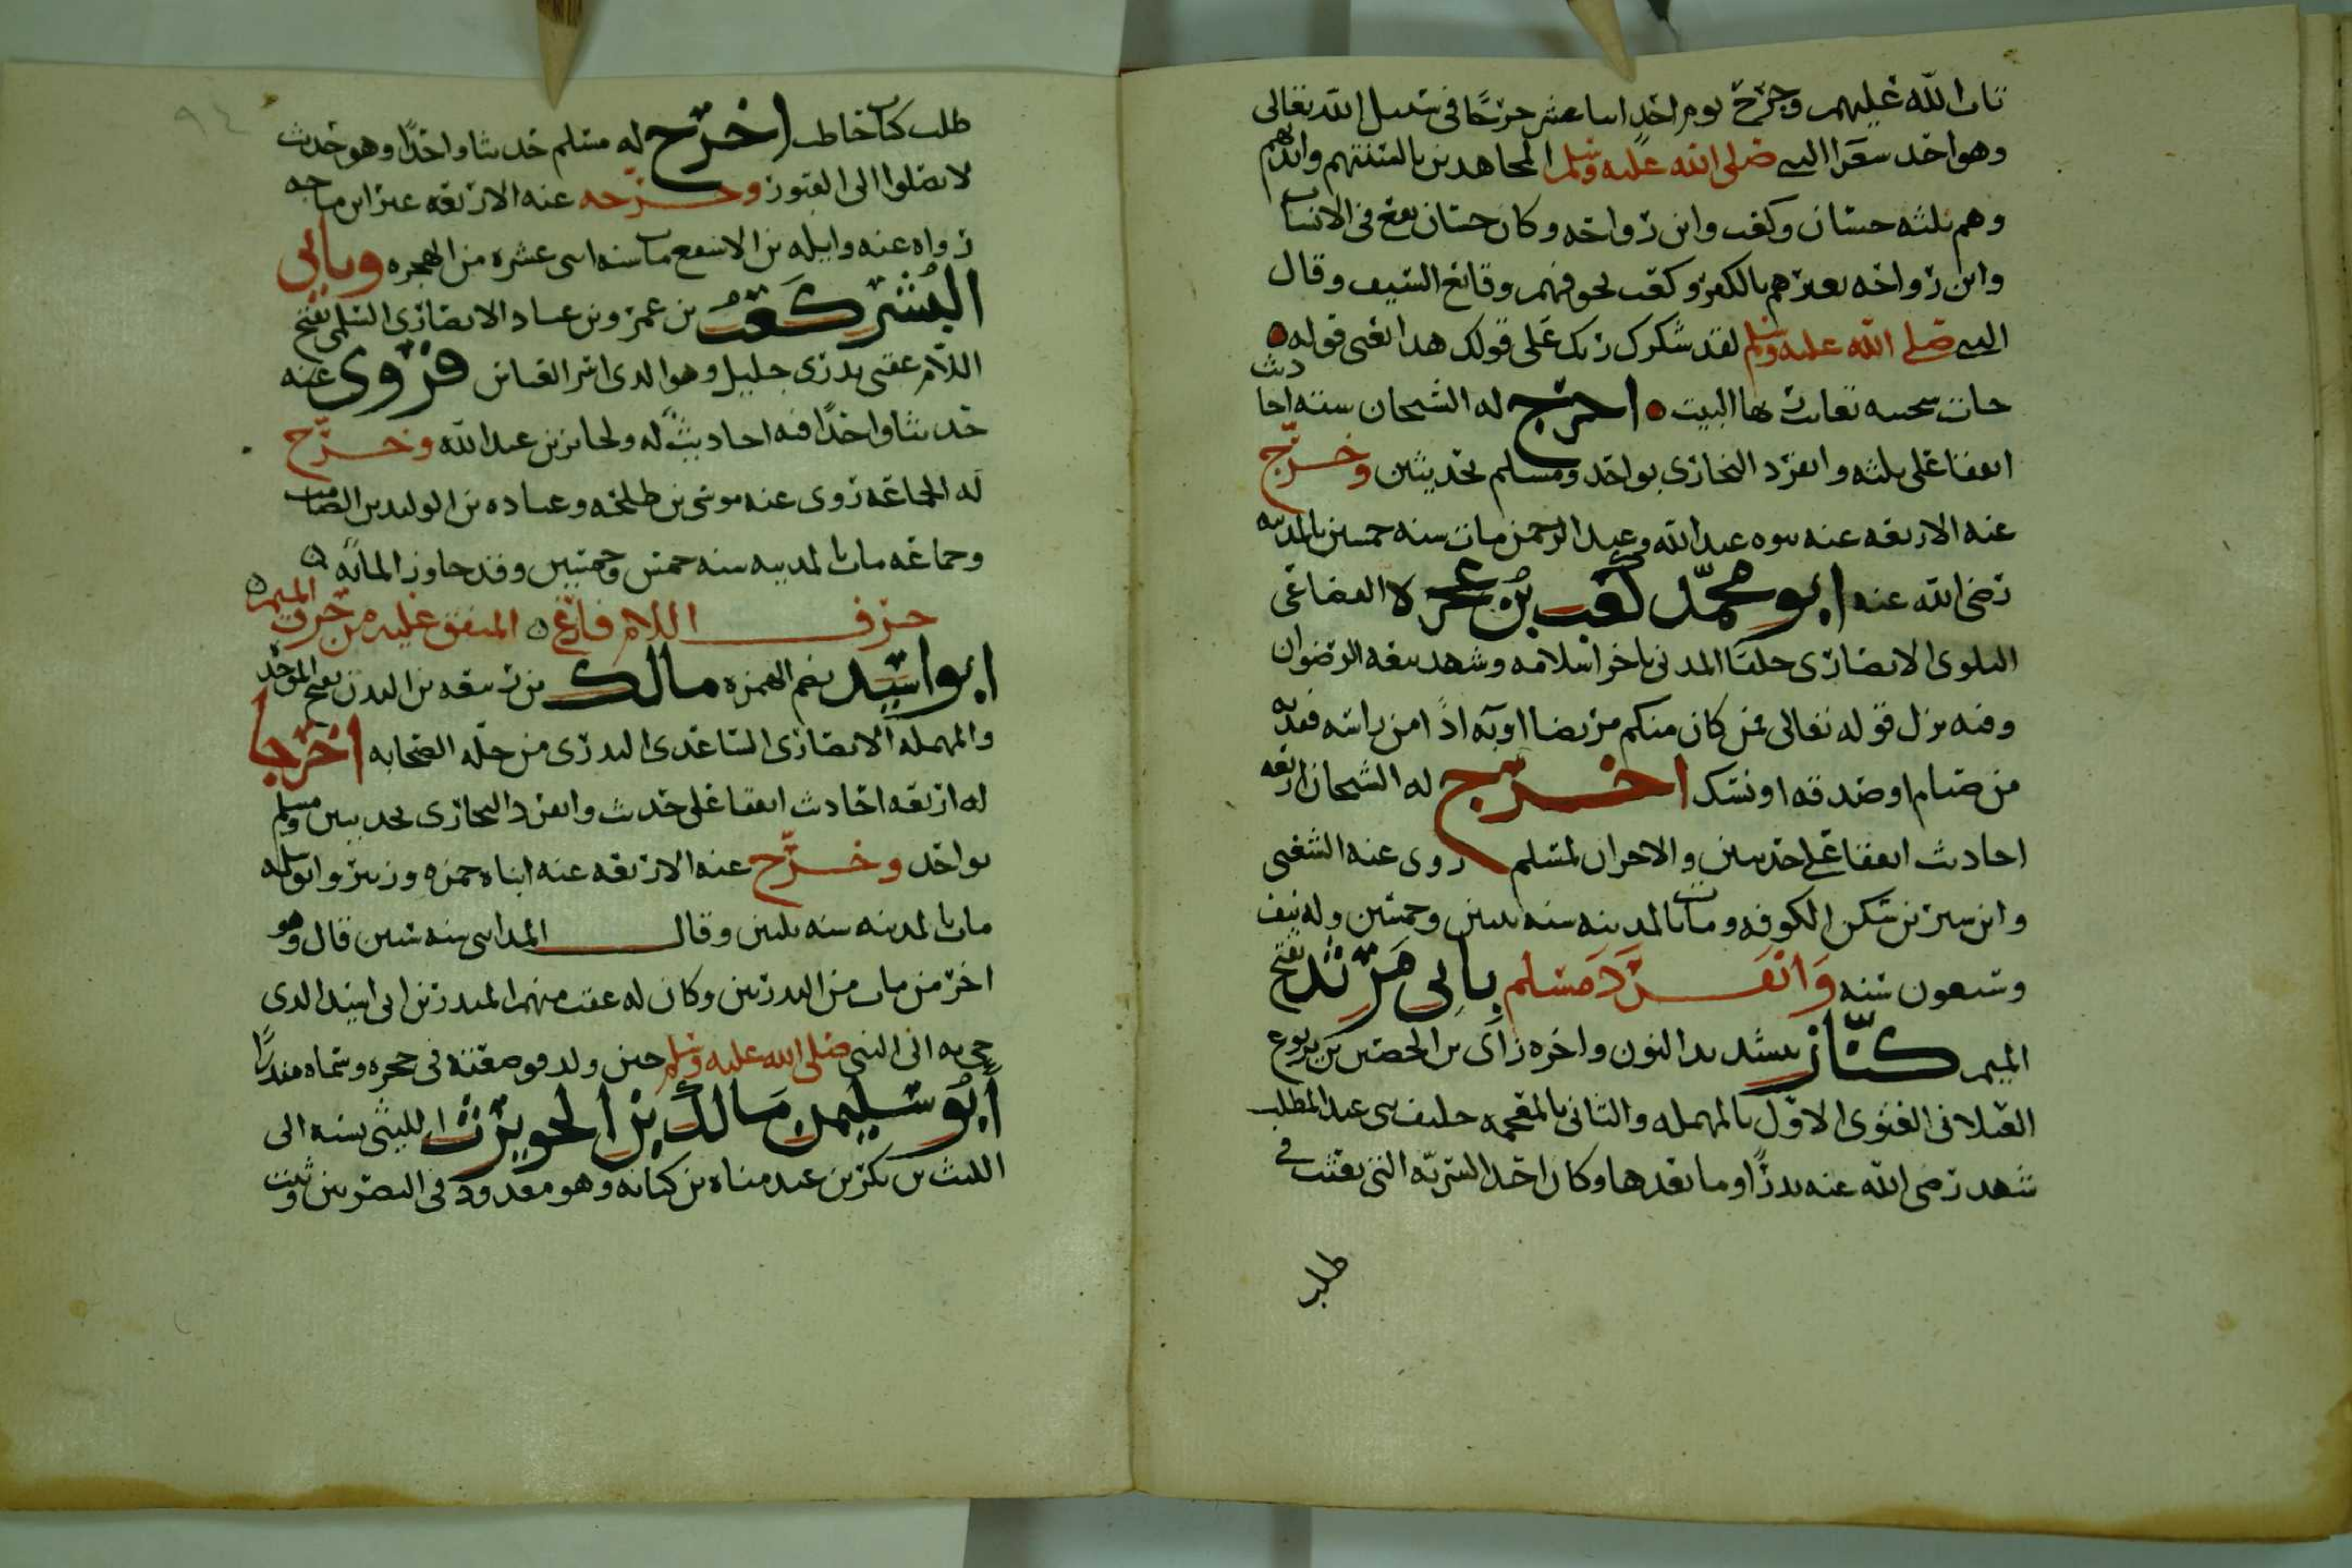 تاب الله عليهم وجرح يوم احد احدا عشر جرحا في سبيل الله تعالى
وهو احد شعرا النبي صلى الله عليه وسلم المجاهدين بالسنتهم وايديهم
وهم ثلثه حسان وكعب وابن رواحه وكان حسان يقع في الانساب
وابن رواحه يعيرهم بالكفر وكعب يخوفهم وقائع السيف وقال
النبي صلى الله عليه وسلم لقد شكرك ربك على قولك هذا يعني قوله
جات سخينه تغالب ربها البيت اخرج له الشيخان سته احاديث
اتفقا على ثلثه وانفرد البخاري بواحد ومسلم بحديثين وخرج
عنه الاربعه عنه بنوه عبد الله وعبد الرحمن مات سنه خمسين بالمدينه
رضي الله عنه ابو محمد كعب بن عجره القضاعي
البلوي الانصاري حلفا المدني تاخر اسلامه وشهد بيعه الرضوان
وفيه نزل قوله تعالى فمن كان منكم مريضا او به اذا من راسه ففديه
من صيام او صدقه او نسك اخرج له الشيخان اربعه
احاديث اتفقا على حديثين والاخران لمسلم روى عنه الشعبي
وابن سيرين سكن الكوفه ومات بالمدينه سنه ثنتين وخمسين وله نيف
وسبعون سنه وانفرد مسلم بابي مرثد بفتح
الميم كناز بتشديد النون واخره زاي بن الحصين بن يربوع
العيلاني الغنوي الاول بالمهمله والثاني بالمعجمه حليف بني عبد المطلب
شهد رضي الله عنه بدرا وما بعدها وكان احد السريه التي بعثت في
طلب
طلب كتاب حاطب اخرج له مسلم حديثا واحدا وهو حديث
لا تصلوا الى القبور وخرجه عنه الاربعه غير ابن ماجه
رواه عنه واثله بن الاسقع مات سنه اثنتي عشره من الهجره وبابي
اليسر كعب بن عمرو بن عباد الانصاري السلمي بفتح
اللام عقبي بدري جليل وهو الذي اسر العباس فروى عنه
حديثا واحدا فيه احاديث له ولجابر بن عبد الله وخرج
له الجماعه روى عنه موسى بن طلحه وعباده بن الوليد بن الصامت
وجماعه مات بالمدينه سنه خمس وخمسين وقد جاوز المائه
حرف اللام فارغ المتفق عليه من حرف الميم
ابو اسيد بضم الهمزه مالك بن ربيعه بن البدن بفتح الموحد
والمهمله الانصاري الساعدي البدري من جله الصحابه اخرجا
له اربعه احاديث اتفقا على حديث وانفرد البخاري بحديثين ومسلم
بواحد وخرج عنه الاربعه عنه ابناه حمزه وزبير وابو سلمه
مات بالمدينه سنه ثلثين وقال المدايني سنه ستين قال وهو
اخر من مات من البدريين وكان له عقب منهم المنذر بن ابي اسيد الذي
جي به الى النبي صلى الله عليه وسلم حين ولد فوضعته في حجره وسماه منذرا
ابو سليمن مالك بن الحويرث الليثي نسبه الى
الليث بن بكر بن عبد مناه بن كنانه وهو معدود في البصريين وثبت